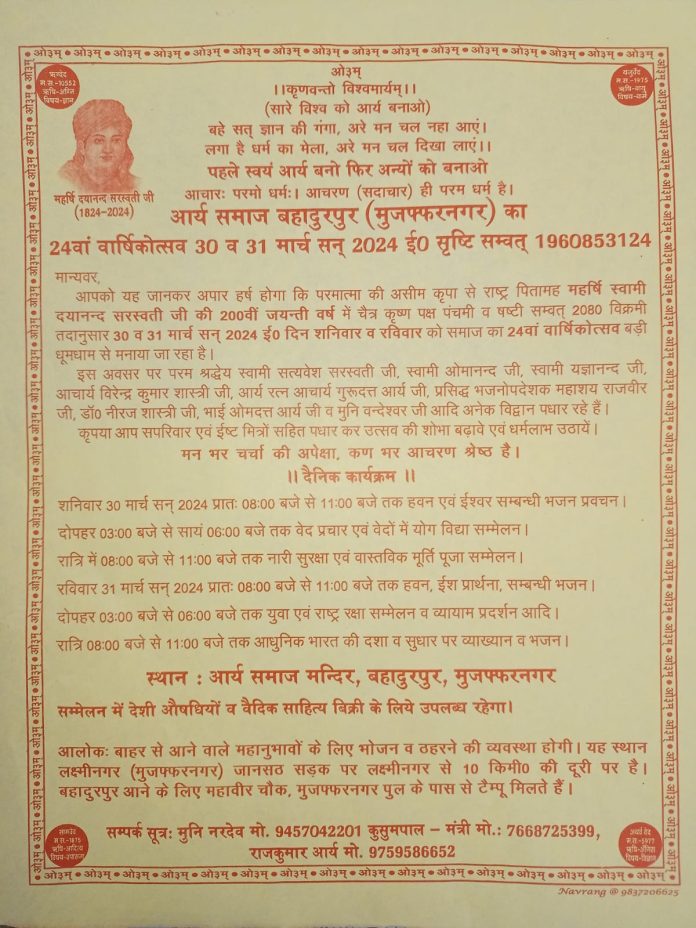 ओ३म् ● ओ३म् ● ओ३म् ● ओ३म् ● ओ३म् ● ओ३म् ● ओ३म् ● ओ३म् ● ओ३म् ● ओ३म् ● ओ३म्
ओ३म्
ऋग्वेद
म.स.-10552
ऋषि-अग्नि
विषय-ज्ञान
यजुर्वेद
म.स.-1975
ऋषि-वायु
विषय-कर्म
।।कृणवन्तो विश्वमार्यम्।।
(सारे विश्व को आर्य बनाओ)
बहे सत् ज्ञान की गंगा, अरे मन चल नहा आएं।
लगा है धर्म का मेला, अरे मन चल दिखा लाएं।।
पहले स्वयं आर्य बनो फिर अन्यों को बनाओ
आचारः परमो धर्मः। आचरण (सदाचार) ही परम धर्म है।
महर्षि दयानन्द सरस्वती जी
(1824-2024)
आर्य समाज बहादुरपुर (मुजफ्फरनगर) का
24वां वार्षिकोत्सव 30 व 31 मार्च सन् 2024 ई0 सृष्टि सम्वत् 1960853124
मान्यवर,
आपको यह जानकर अपार हर्ष होगा कि परमात्मा की असीम कृपा से राष्ट्र पितामह महर्षि स्वामी
दयानन्द सरस्वती जी की 200वीं जयन्ती वर्ष में चैत्र कृष्ण पक्ष पंचमी व षष्टी सम्वत् 2080 विक्रमी
तदानुसार 30 व 31 मार्च सन् 2024 ई0 दिन शनिवार व रविवार को समाज का 24वां वार्षिकोत्सव बड़ी
धूमधाम से मनाया जा रहा है।
इस अवसर पर परम श्रद्धेय स्वामी सत्यवेश सरस्वती जी, स्वामी ओमानन्द जी, स्वामी यज्ञानन्द जी,
आचार्य विरेन्द्र कुमार शास्त्री जी, आर्य रत्न आचार्य गुरूदत्त आर्य जी, प्रसिद्ध भजनोपदेशक महाशय राजवीर
जी, डॉ0 नीरज शास्त्री जी, भाई ओमदत्त आर्य जी व मुनि वन्देश्वर जी आदि अनेक विद्वान पधार रहे हैं।
कृपया आप सपरिवार एवं ईष्ट मित्रों सहित पधार कर उत्सव की शोभा बढ़ावे एवं धर्मलाभ उठायें।
मन भर चर्चा की अपेक्षा, कण भर आचरण श्रेष्ठ है।
।। दैनिक कार्यक्रम ।।
शनिवार 30 मार्च सन् 2024 प्रातः 08:00 बजे से 11:00 बजे तक हवन एवं ईश्वर सम्बन्धी भजन प्रवचन।
दोपहर 03:00 बजे से सायं 06:00 बजे तक वेद प्रचार एवं वेदों में योग विद्या सम्मेलन।
रात्रि में 08:00 बजे से 11:00 बजे तक नारी सुरक्षा एवं वास्तविक मूर्ति पूजा सम्मेलन।
रविवार 31 मार्च सन् 2024 प्रातः 08:00 बजे से 11:00 बजे तक हवन, ईश प्रार्थना, सम्बन्धी भजन।
दोपहर 03:00 बजे से 06:00 बजे तक युवा एवं राष्ट्र रक्षा सम्मेलन व व्यायाम प्रदर्शन आदि।
रात्रि 08:00 बजे से 11:00 बजे तक आधुनिक भारत की दशा व सुधार पर व्याख्यान व भजन।
स्थान : आर्य समाज मन्दिर, बहादुरपुर, मुजफ्फरनगर
सम्मेलन में देशी औषधियों व वैदिक साहित्य बिक्री के लिये उपलब्ध रहेगा।
आलोकः बाहर से आने वाले महानुभावों के लिए भोजन व ठहरने की व्यवस्था होगी। यह स्थान
लक्ष्मीनगर (मुजफ्फरनगर) जानसठ सड़क पर लक्ष्मीनगर से 10 किमी0 की दूरी पर है।
बहादुरपुर आने के लिए महावीर चौक, मुजफ्फरनगर पुल के पास से टैम्पू मिलते हैं।
सम्पर्क सूत्रः मुनि नरदेव मो. 9457042201 कुसुमपाल – मंत्री मो.: 7668725399,
राजकुमार आर्य मो. 9759586652
सामवेद
म.स.-1875
ऋषि-आदित्य
विषय-उपासना
अथर्व वेद
म.स.-5977
ऋषि-अंगिरा
विषय-विज्ञान
Navrang @ 9837206625